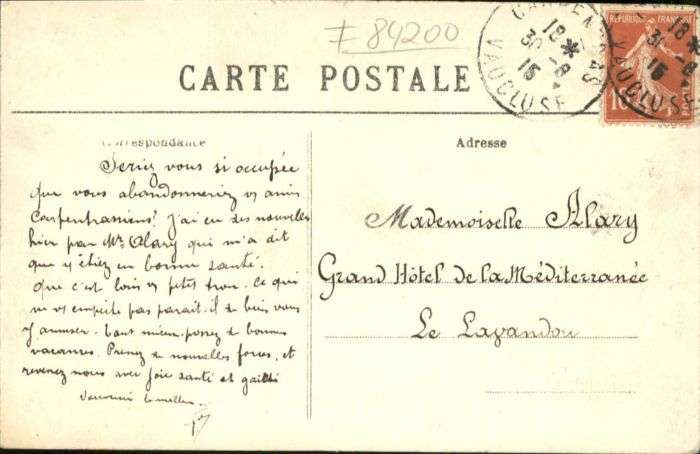 # 84200
CARTE POSTALE
CARPENTRAS
18 *
30 -8
15
VAUCLUSE
REPUBLIQUE FRANÇAISE
18
30 -8
15
VAUCLUSE
10
Correspondance
Seriez vous si occupée
que vous abandonneriez vs amis
Carpentrassiens? J'ai eu des nouvelles
hier par Mr. Alary qui m'a dit
que y étiez en bonne santé.
Que c'est loin vs petit trou. Ce qui
ne vs empêche pas parait-il de bien vous
y amuser. Tant mieux. passez de bonnes
vacances. Prenez de nouvelles forces, et
revenez nous avec joie santé et gaité
Souvenir
Adresse
Mademoiselle Alary
Grand Hôtel de la Méditerranée
Le Lavandou